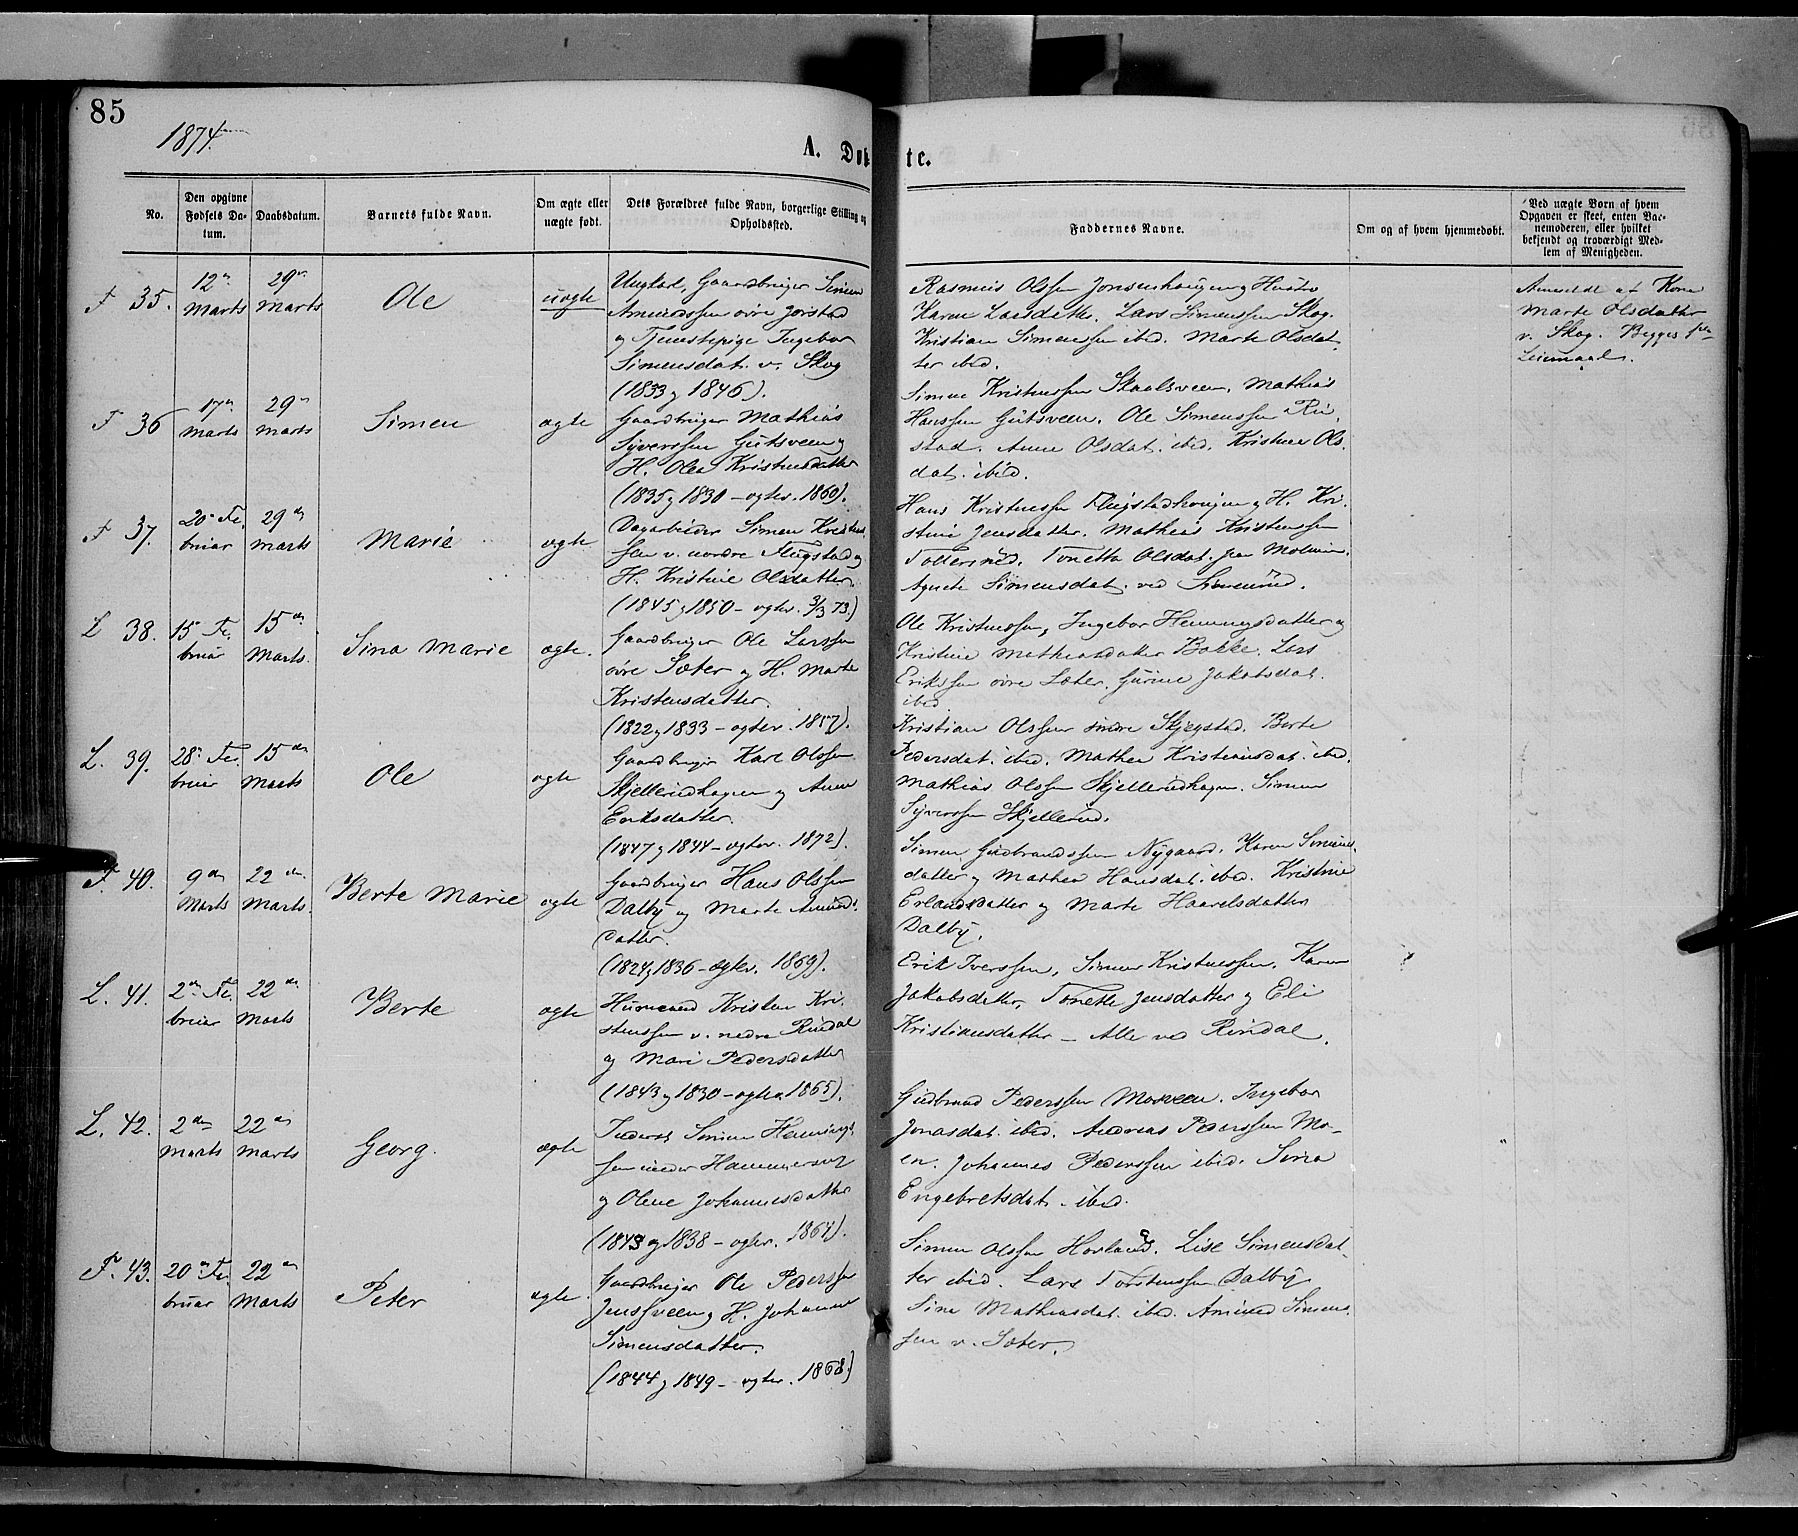 85
1874.
A. Døbte.
No.
Den opgivne Fødsels Datum.
Daabsdatum.
Barnets fulde Navn.
Om ægte eller uægte født.
Dets Forældres fulde Navn, borgerlige Stilling og Opholdssted.
Faddernes Navne.
Om og af hvem hjemmedøbt.
Ved uægte Børn af hvem Opgaven er skeet, enten Barnemoderen, eller hvilket bekjendt og troværdigt Medlem af Menigheden.
F 35. 12te Marts 29de Marts Ole uægte
Ungkarl, Gaardbruger Simen
Amundssen øvre Jørstad
og Tjenestepige Ingebor
Simensdat. v. Skog
(1833 og 1846).
Rasmus Olssen Jonsenhaugen og Hustru
Karen Larsdatter. Lars Simenssen Skog.
Kristian Simenssen ibid. Marte Olsdat-
ter ibid.
Anmeldt af Kone
Marte Olsdatter
v. Skog. Begges 1ste
Leiermaal.
F 36 17de Marts 29de Marts Simen ægte
Gaardbruger Mathias
Syverssen Gutsveen og
H. Olea Kristensdatter
(1835 og 1830 – ægtev. 1860).
Simen Kristenssen Skaalsveen. Mathias
Hanssen Gutsveen. Ole Simenssen Ru-
stad. Anne Olsdat. ibid. Kristine Ols-
dat. ibid.
F 37. 20de Februar 29de Marts Marie ægte
Dagarbeider Simen Kristens-
sen v. nordre Flugstad og
H. Kristine Olsdatter.
(1845 og 1850 – ægtev. 3/3 73.)
Hans Kristenssen Flugstadhaugen og H. Kri-
stine Jensdatter. Mathias Kristenssen
Tollersrud. Tonette Olsdat. paa Moluen.
Agnete Simensdat. ved Simenrud.
L 38. 15de Februar 15de Marts. Sina Marie ægte.
Gaardbruger Ole Larssen
øvre Sæter og H. Marte
Kristensdatter.
(1822 og 1833 – ægtev. 1857).
Ole Kristenssen, Ingebor Hemmingsdatter og
Kristine Mathiasdatter Bakke. Lars
Erikssen øvre Sæter. Gurine Jakobsdat.
ibid.
L. 39. 28de Februar 15de Marts Ole ægte
Gaardbruger Karl Olssen
Skjellerudhagen og Anne
Eriksdatter.
(1847 og 1844 – ægtev. 1872).
Kristian Olssen søndre Skjegstad. Berte
Pedersdat. ibid. Mathea Kristiansdat. ibid.
Mathias Olssen Skjellerudhagen. Simen
Syverssen Skjellerud.
F. 40. 9de Marts 22de Marts. Berte Marie ægte
Gaardbruger Hans Olssen
Dalby og Marte Amunds-
datter.
(1827 og 1836 – ægtev. 1869).
Simen Gudbrandssen Nygaard. Karen Simens-
datter og Mathea Hansdat. ibid. Kristine
Erlandsdatter og Marte Haavelsdatter
Dalby.
L. 41. 2den Februar 22de Marts Berte ægte
Husmand Kristen Kri-
stenssen v. nedre Rindal
og Mari Pedersdatter
(1843 og 1830 – ægtev. 1865).
Erik Iverssen, Simen Kristenssen. Karen
Jakobsdatter, Tonette Jensdatter og Eli
Kristiansdatter – Alle ved Rindal.
L. 42. 2den Marts 22de Marts Georg. ægte
Inderst Simen Hemmings-
sen under Hammerseng
og Olene Johannesdatter
(1843 og 1838 – ægtev. 1864).
Gudbrand Pederssen Moveen. Ingebor
Jonasdat. ibid. Andreas Pederssen Mo-
en. Johannes Pederssen ibid. Sina
Engebretsdat. ibid.
F. 43. 20de Februar 22de Marts Peter ægte.
Gaardbruger Ole Pederssen
Jenssveen og H. Johanne
Simensdatter.
(1844 og 1849 – ægtev. 1868.)
Simen Olssen Hovland. Lise Simensdat-
ter ibid. Lars Torstenssen Dalby
Sina Mathiasdat. ibid. Amund Simens-
sen v. Sæter.